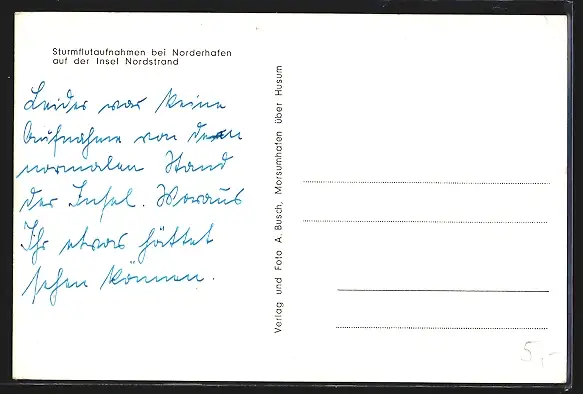 Sturmflutaufnahmen bei Norderhafen
auf der Insel Nordstrand
Leider war keine
Aufnahme von dem
normalen Stand
der Insel. Woraus
Ihr etwas hättet
sehen können.
Verlag und Foto A. Busch, Morsumhafen über Husum
5,-